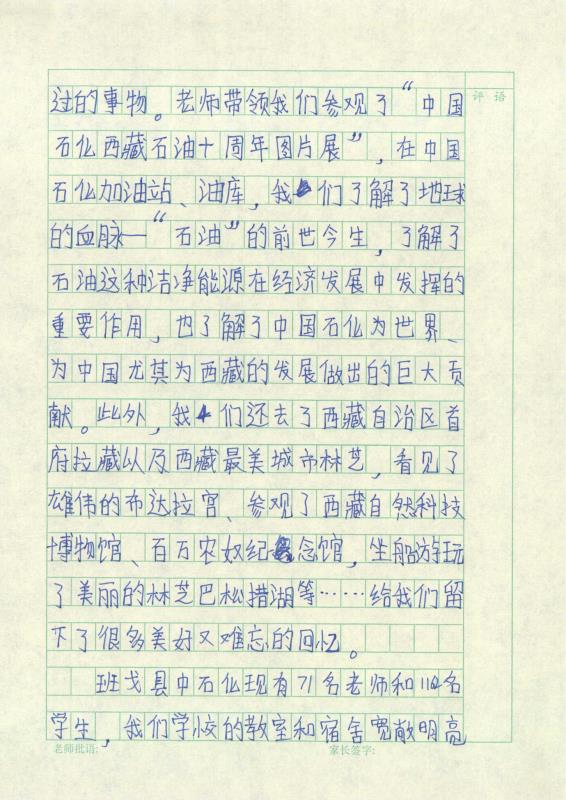 评 语
过的事物。老师带领我们参观了“中国
石化西藏石油十周年图片展”，在中国
石化加油站、油库，我们了解了地球
的血脉—“石油”的前世今生，了解了
石油这种洁净能源在经济发展中发挥的
重要作用，也了解了中国石化为世界、
为中国尤其为西藏的发展做出的巨大贡
献。此外，我们还去了西藏自治区首
府拉藏以及西藏最美城市林芝，看见了
雄伟的布达拉宫、参观了西藏自然科技
博物馆、百万农奴纪念馆，坐船游玩
了美丽的林芝巴松措湖等……给我们留
下了很多美好又难忘的回忆。
班戈县中石化现有71名老师和名
学生，我们学校的教室和宿舍宽敞明亮
老师批语:
家长签字: